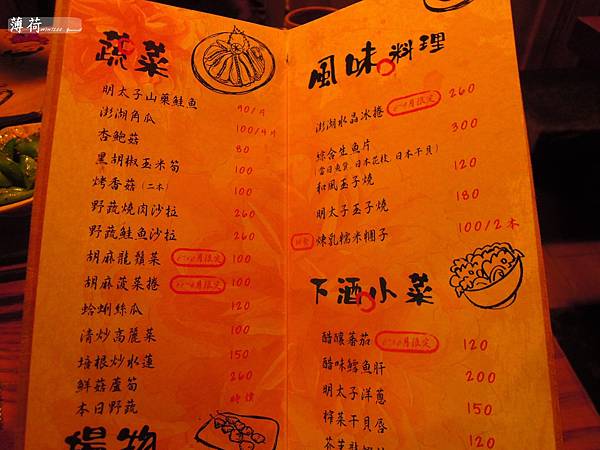 薄荷
蔬菜
明太子山藥鮭魚 90/片
澎湖角瓜 100/4片
杏鮑菇 80
黑胡椒玉米筍 100
烤香菇(二本) 100
野蔬燒肉沙拉 260
野蔬鮭魚沙拉 260
胡麻龍鬚菜 100
胡麻菠菜捲 100
蛤蜊絲瓜 120
清炒高麗菜 100
培根炒水蓮 150
鮮菇蘆筍 260
本日野蔬 時價
揚物
風味料理
澎湖水晶冰捲 260
綜合生魚片 300
(當日魚貨、日本花枝、日本干貝)
和風玉子燒 120
明太子玉子燒 180
煉乳糯米糰子 100/2本
下酒小菜
醋釀蕃茄 120
醋味鱈魚肝 200
明太子洋蔥 150
榨菜干貝唇 120